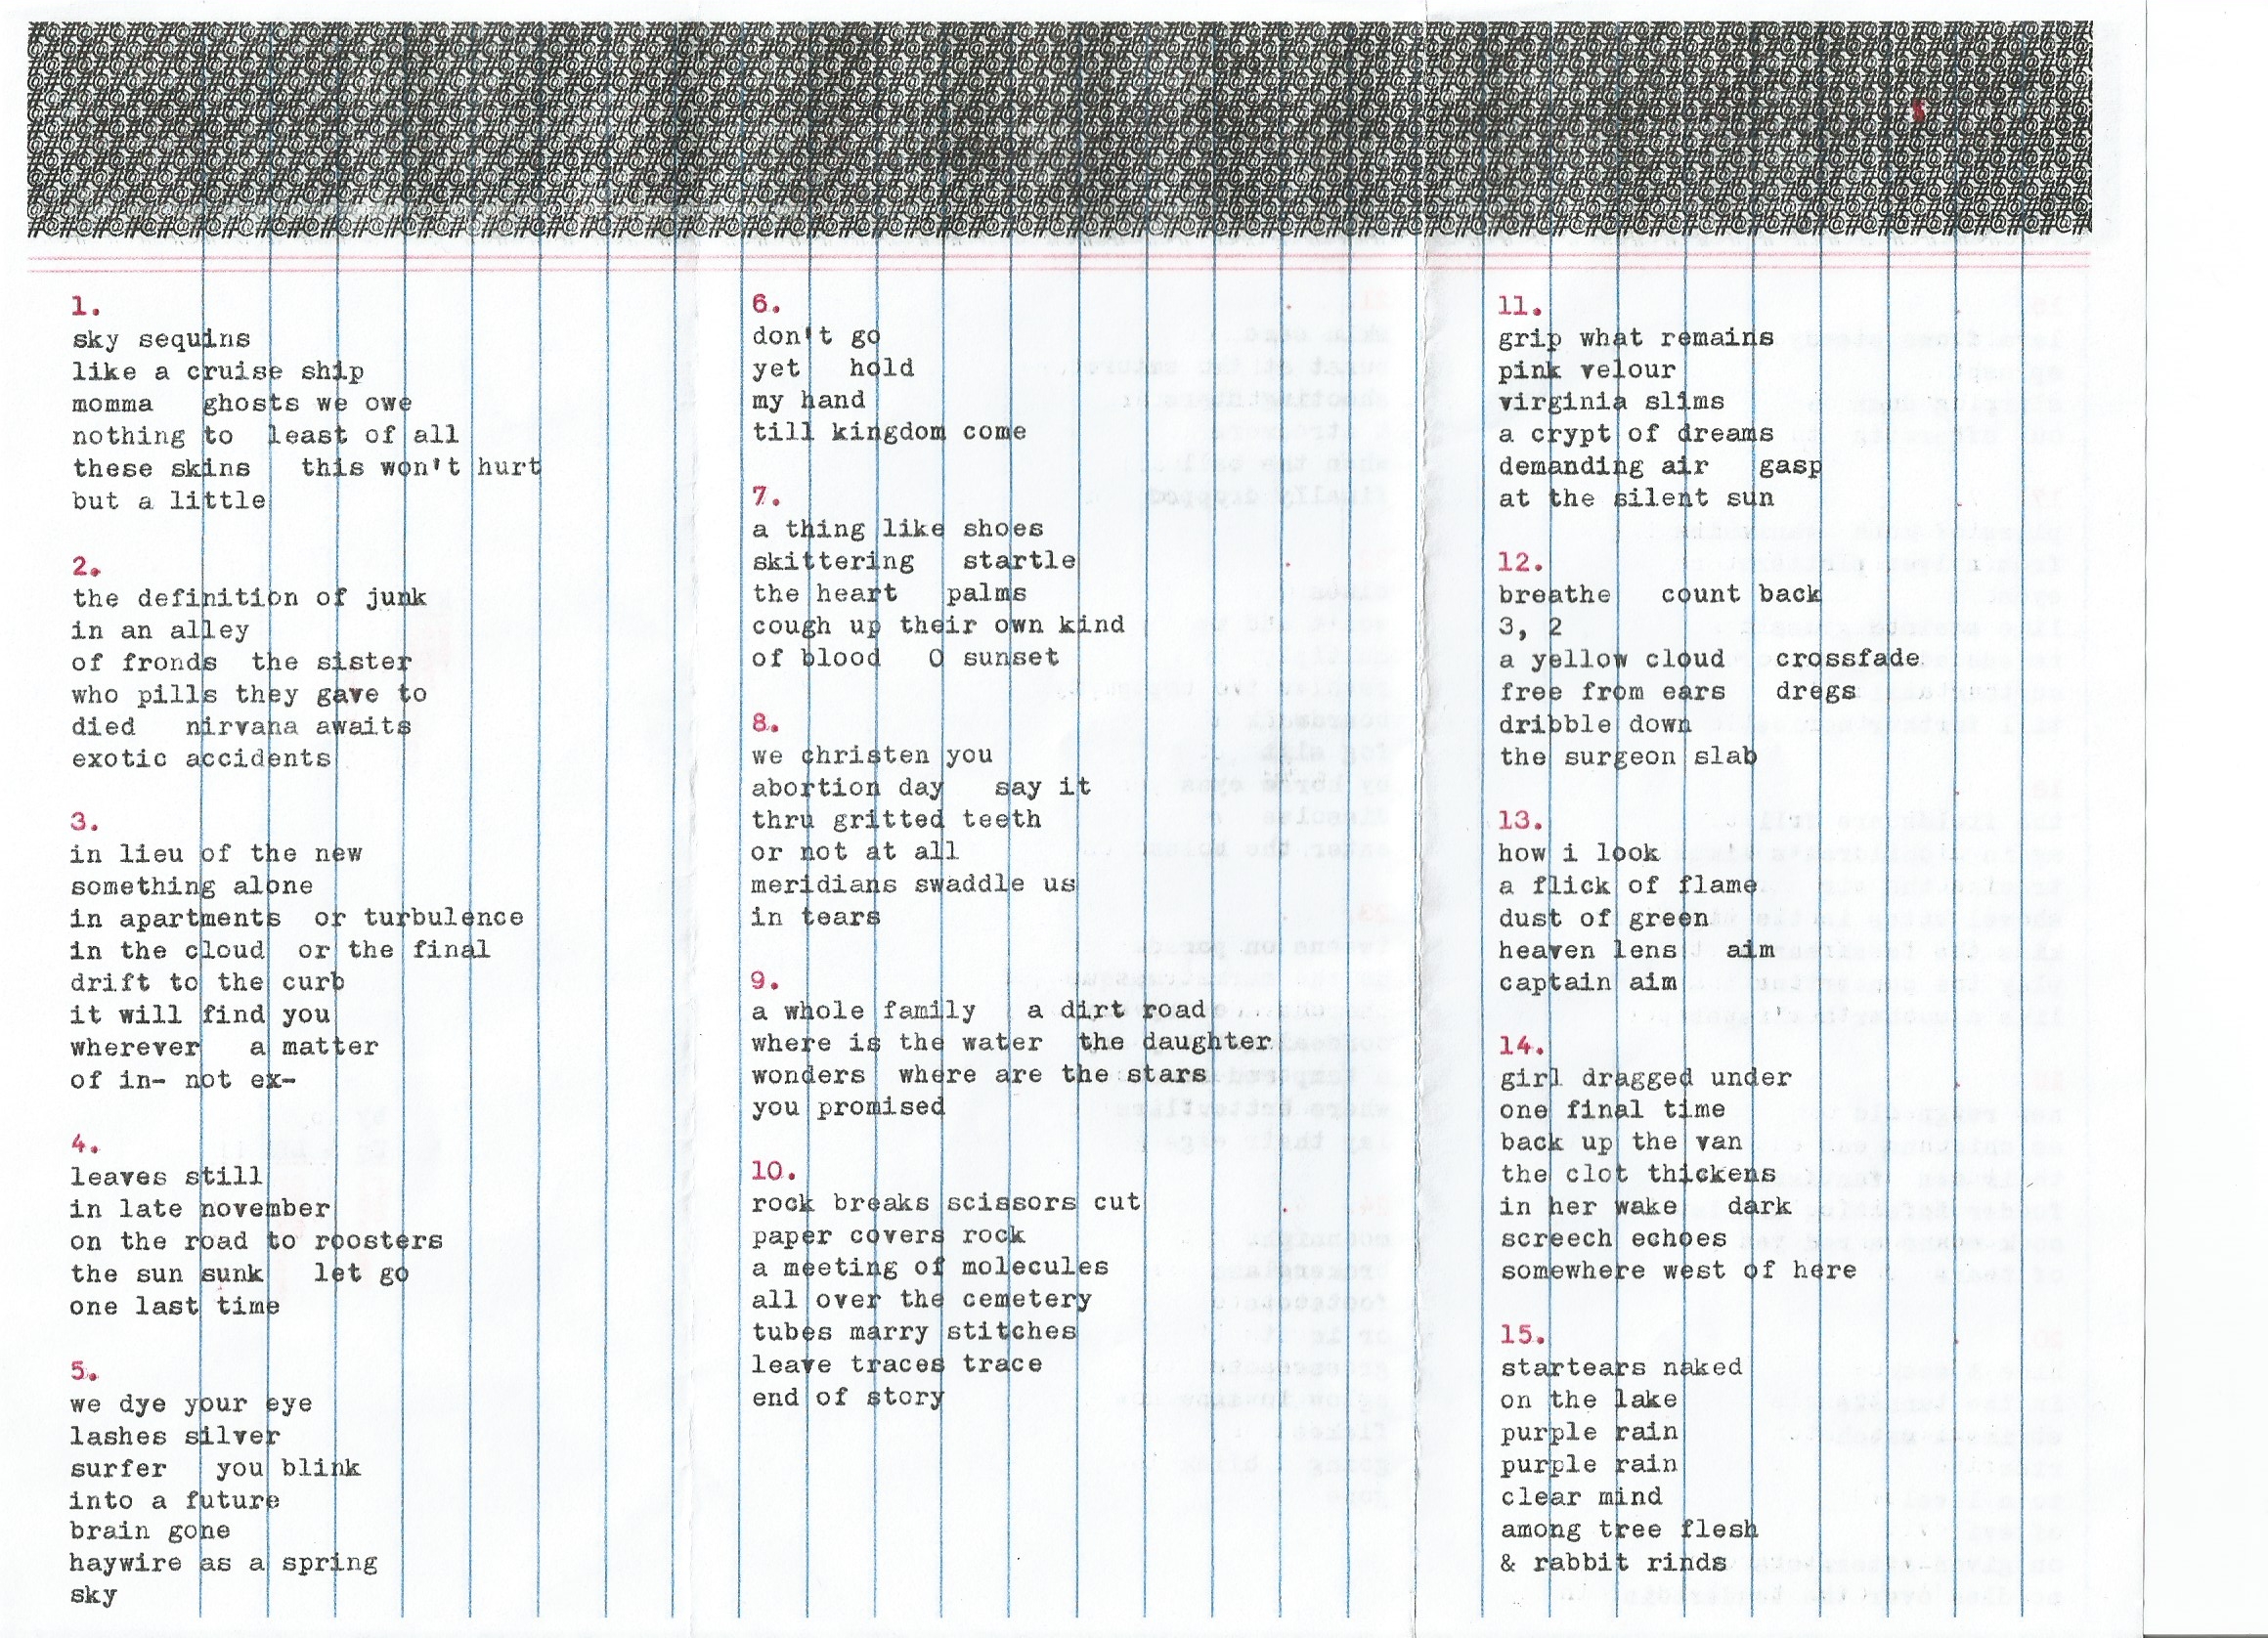 1.
sky sequins
like a cruise ship
momma   ghosts we owe
nothing to  least of all
these skins   this won't hurt
but a little
2.
the definition of junk
in an alley
of fronds  the sister
who pills they gave to
died   nirvana awaits
exotic accidents
3.
in lieu of the new
something alone
in apartments  or turbulence
in the cloud  or the final
drift to the curb
it will find you
wherever   a matter
of in- not ex-
4.
leaves still
in late november
on the road to roosters
the sun sunk   let go
one last time
5.
we dye your eye
lashes silver
surfer   you blink
into a future
brain gone
haywire as a spring
sky
6.
don't go
yet   hold
my hand
till kingdom come
7.
a thing like shoes
skittering   startle
the heart   palms
cough up their own kind
of blood   O sunset
8.
we christen you
abortion day   say it
thru gritted teeth
or not at all
meridians swaddle us
in tears
9.
a whole family   a dirt road
where is the water  the daughter
wonders  where are the stars
you promised
10.
rock breaks scissors cut
paper covers rock
a meeting of molecules
all over the cemetery
tubes marry stitches
leave traces trace
end of story
11.
grip what remains
pink velour
virginia slims
a crypt of dreams
demanding air   gasp
at the silent sun
12.
breathe   count back
3, 2
a yellow cloud   crossfade
free from ears   dregs
dribble down
the surgeon slab
13.
how i look
a flick of flame
dust of green
heaven lens   aim
captain aim
14.
girl dragged under
one final time
back up the van
the clot thickens
in her wake   dark
screech echoes
somewhere west of here
15.
startears naked
on the lake
purple rain
purple rain
clear mind
among tree flesh
& rabbit rinds